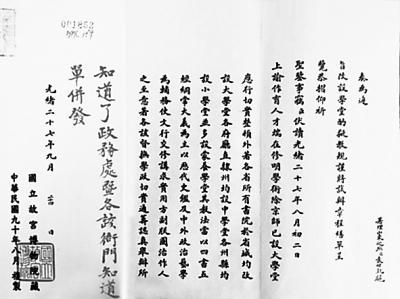 奏為遵
旨改設學堂酌擬教規謹將試辦章程繕單呈
覽恭摺仰祈
聖鑒事竊臣伏讀光緒二十七年八月初二日
上諭作育人才端在修明學術除京師已設大學堂
應行切實整頓外著各省所有書院於省城均改
設大學堂各府廳直隸州均設中學堂各州縣均
設小學堂並多設蒙養學堂其教法當以四書五
經綱常大義為主以歷代史鑑及中外政治藝學
為輔務使文行交修講求實用力副朕圖治作人
之至意著各該督撫學政切實通籌認真舉辦所
知道了政務處暨各該衙門知道
單併發
光緒二十七年九月 日
國立故宮博物院藏
中華民國九十年八月複製